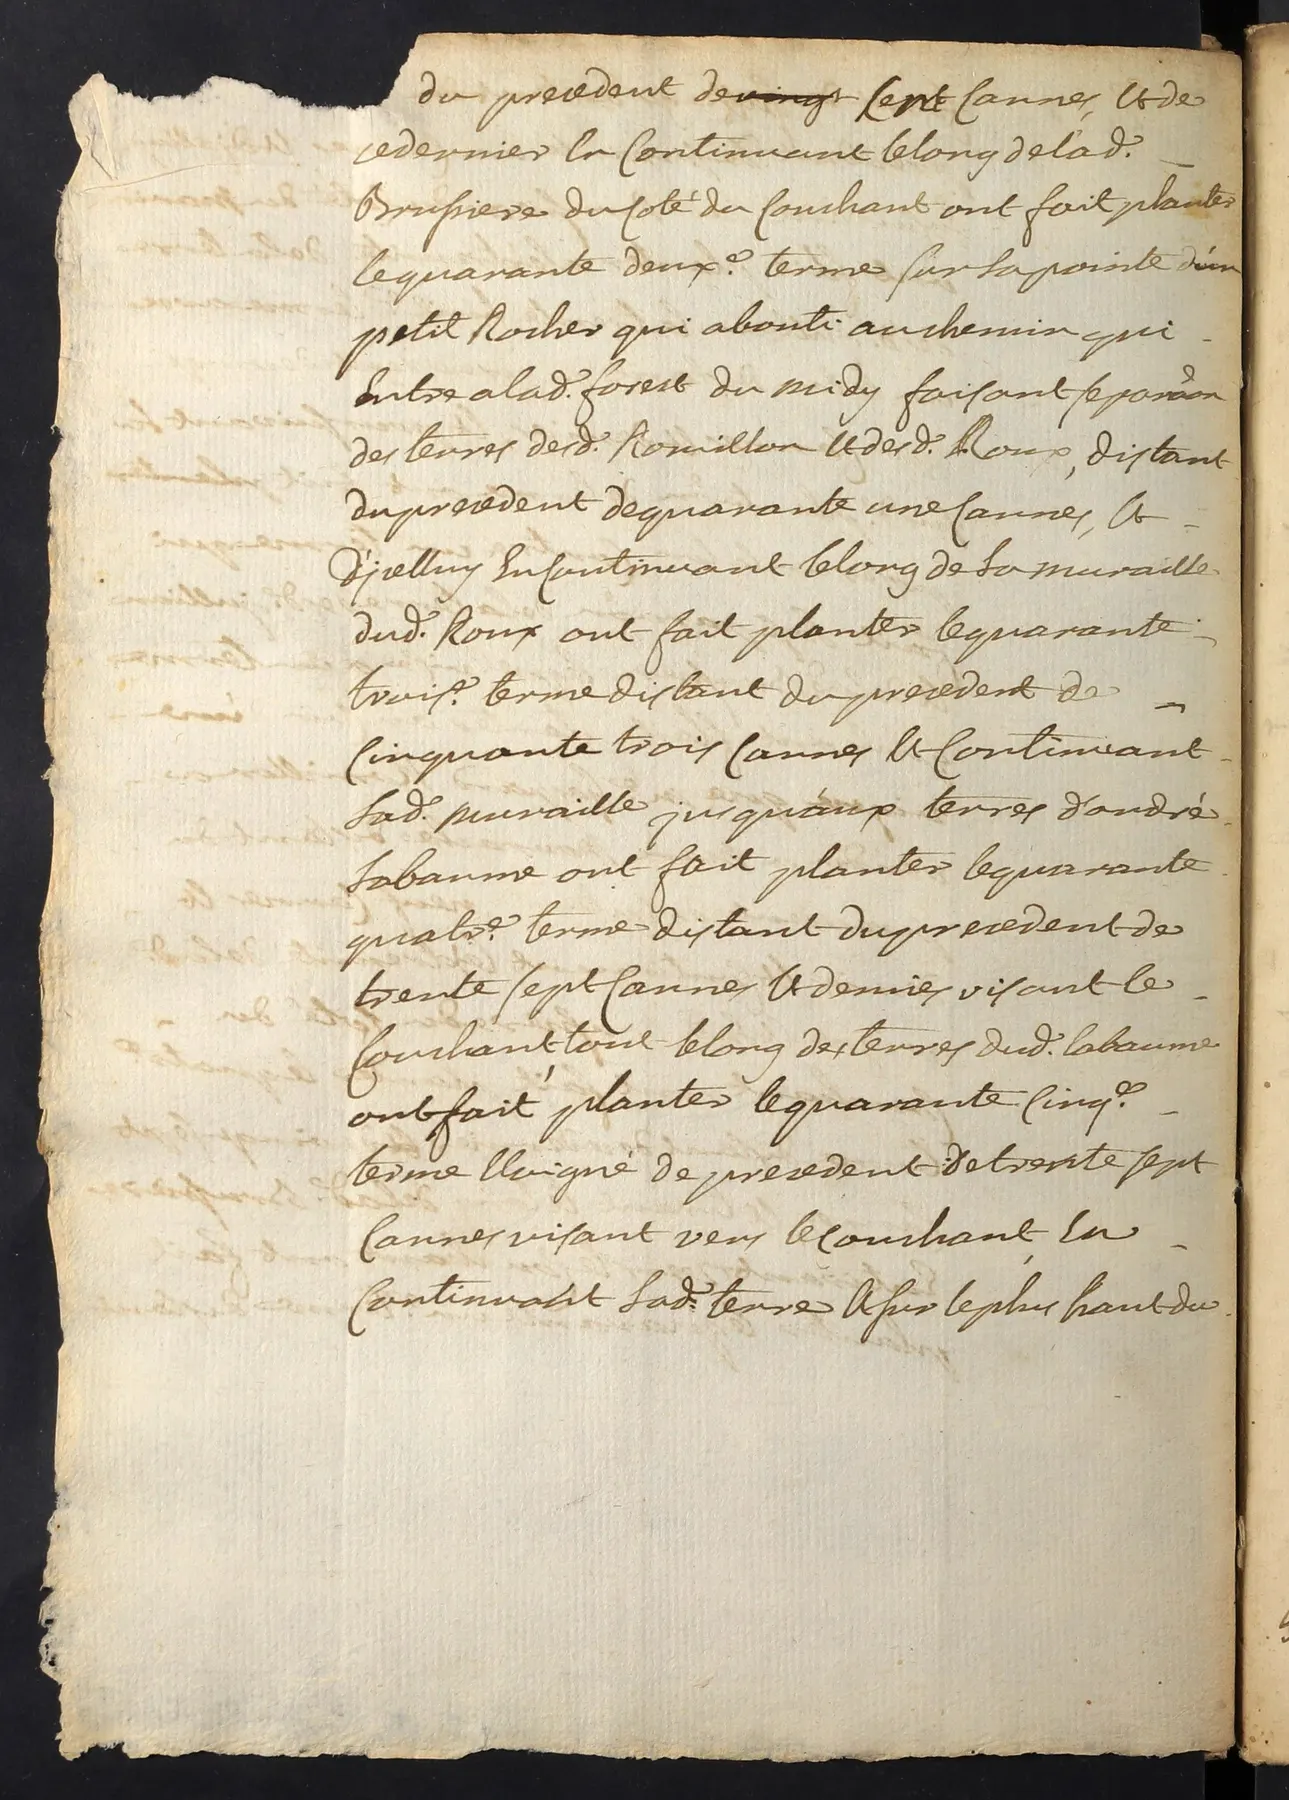 du precedent de vingt sept Cannes, et de
cedernier En Continuant lelong delad.
Brussiere du Coté du Couchant ont fait planter
lequarante deuxe. terme sur la pointe d'un
petit Rocher qui abouti au chemin qui
Entre a lad. forest du midy faisant separãon
des terres desd. Rouvillon et desd. Roux, distant
du precedent dequarante une Cannes, et
d'jcelluy En Continuant lelong de la muraille
dud. Roux ont fait planter lequarante
troise. terme distant du precedent de
Cinquante trois Cannes et Continuant
lad. muraille jusqu'aux terres d'andré
labaume ont fait planter lequarante
quatre. terme distant du precedent de
trente sept Cannes et demies visant le
Couchant, tout lelong des terres dud. labaume
ont fait planter lequarante Cinqe.
terme Eloigné de precedent de trente sept
Cannes visant vers le Couchant, En
Continuant lad. terre et sur le plus haut du